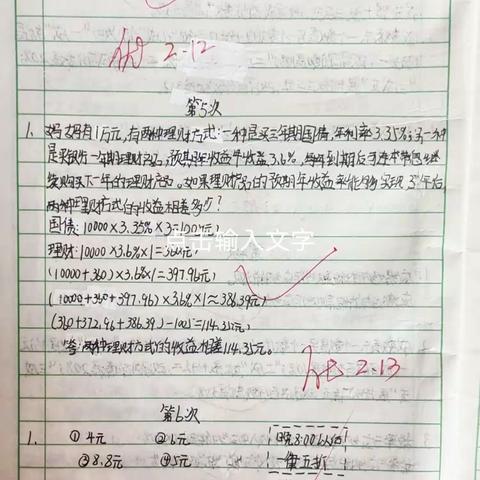 优 2.12
第5次
1. 妈妈有1万元,有两种理财方式:一种是买三年期国债,年利率3.35%;另一种
是买银行一年期理财产品,预期年收益率收益3.6%,每年到期后连本带息继
续购买下一年的理财产品。如果理财产品的预期年收益率能够实现,3年后,
两种理财方式的收益相差多少?
国债:10000×3.35%×3=1005(元)
理财:10000×3.6%×1=360(元)
(10000+360)×3.6%×1=397.96(元)
(10000+360+397.96)×3.6%×1=386.39(元)
点击输入文字
(360+372.96+386.39)-1005=114.35(元)
答:两种理财方式的收益相差114.35元。
优 2.13
第6次
1. ①4元 ②6元
晚8:00以后
③8.8元 ④5元
一律五折